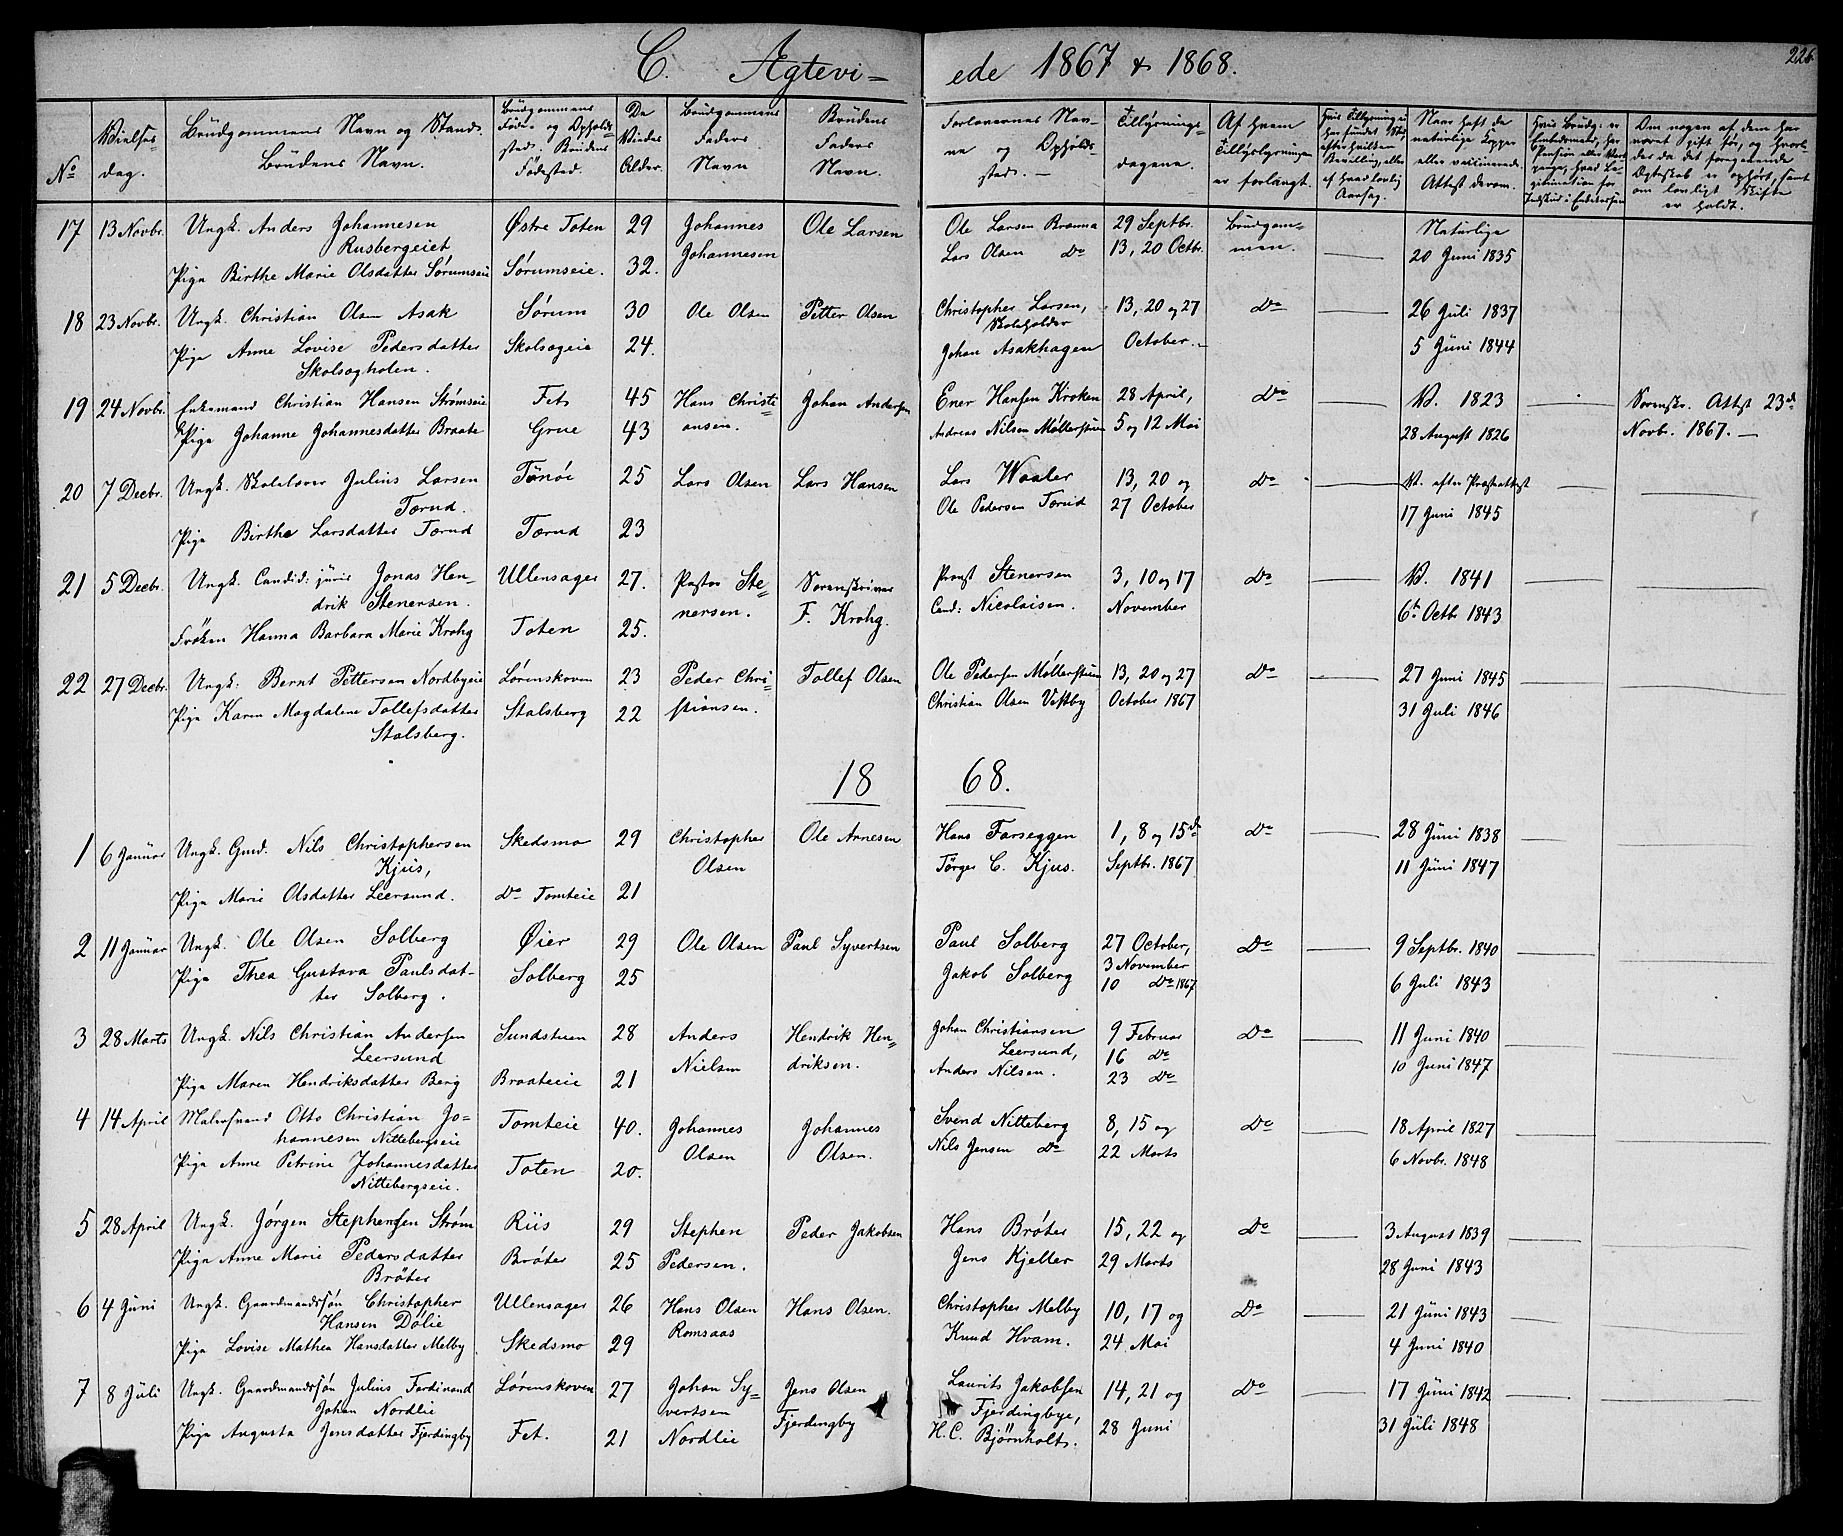 C. Ægtevi- ede 1867 & 1868.
226
No
Vielses-
dag.
Brüdgommens Navn og Stand.
Brüdens Navn.
Brüdgommens
Føde- og Opholds-
sted. Brüdens
Fødested.
De
Viedes
Alder.
Brüdgommens
Faders
Navn
Brüdens
Faders
Navn.
Forlovernes Nav-
ne og Opholds-
sted.
Tillysnings-
dagene.
Af hvem
Tillyslysningen
er forlangt.
Naar havt de
natürlige Kopper
eller vaccinerede.
Attest derom.
Om nogen af dem har
været gift før, og hvorle-
des da det foregaaende
Ægteskab er ophørt, samt
om lovligt Skifte
er holdt.
17 13 Novbr. Ungk. Anders Johannesen Østre Toten 29 Johannes Ole Larsen Ole Larsen Branna 29 Septbr. Brüdgom- Natürlige
Rusbergeiet Johannesen Lars Olsen Do 13, 20 Octbr. men. 20 Juni 1835
Pige Birthe Marie Olsdatter Sørumseie Sørumseie. 32.
18 23 Novbr. Ungk. Christian Olsen Asak Sørum 30 Ole Olsen Petter Olsen Christopher Larsen, 13, 20 og 27 Do 26 Juli 1837
Skoleholder
Pige Anne Lovise Pedersdatter Skolsageie 24. Johan Asakhagen October. 5 Jüni 1844
Skolsagholen.
19 24 Novbr. Enkemand Christian Hansen Strømseie Fet 45 Hans Christi- Johan Andersen Ener Hansen Kroken 28 April, Do V. 1823 Sorenskr. Attest 23de
Pige Johanne Johannesdatter Braate Grue 43 ansen. Andreas Nilsen Møllerstuen 5 og 12 Mai 28 August 1826 Novbr. 1867.
20 7 Decbr. Ungk. Skolelærer Julius Larsen Tønøi 25 Lars Olsen Lars Hansen Lars Waaler 13, 20 og Do V. efter Præsteattest
Torud. Ole Pedersen Torud 27 October 17 Juni 1845
Pige Birthe Larsdatter Torud Torud 23
21 5 Decbr. Ungk. Candid: jüris Jonas Hen- Ullensager 27. Pastor Ste- Sorenskriver Provst Stenersen 3, 10 og 17 Do V. 1841
drik Stenersen. nersen. F. Krohg. Cand: Nicolaisen. November 6te Octbr 1843
Frøken Hanna Barbara Marie Krohg Toten 25.
22 27 Decbr. Ungk. Bernt Pettersen Nordbyeie Lørenskoven 23 Peder Chri- Tollef Olsen Ole Pedersen Møllerstuen 13, 20 og 27 Do 27 Juni 1845
Pige Karen Magdalene Tollefsdatter Stalsberg 22 stiansen. Christian Olsen Vestby October 1867 31 Juli 1846
Stalsberg.
18 68.
1 6 Januar Ungk. Gmd. Nils Christophersen Skedsmo 29 Christopher Ole Arnesen Hans Farseggen 1, 8 og 15de Do 28 Jüni 1838
Kjus, Olsen Tørger C. Kjus. Septbr. 1867 11 Jüni 1847
Pige Marie Olsdatter Leersund. Do Tomteie 21
2 11 Januar Ungk. Ole Olsen Solberg Øier 29 Ole Olsen Paul Syvertsen Paul Solberg 27 October, Do 9 Septbr. 1840
Pige Thea Gustava Paulsdat- Solberg 25 Jakob Solberg 3 November 6 Juli 1843
ter Solberg. 10 Do 1867
3 28 Marts Ungk. Nils Christian Andersen Sundstuen 28 Anders Hendrik Hen- Johan Christiansen 9 Februar Do 11 Juni 1840
Leersund Nielsen driksen. Leersund, 16 Do 10 Juni 1847
Pige Maren Hendriksdatter Berg Braateie 21 Anders Nilsen. 23 Do
4 14 April Malersvend Otto Christian Jo- Tomteie 40. Johannes Johannes Svend Nitteberg 8, 15 og Do 18 April 1827
hannesen Nittebergseie Olsen Olsen. Nils Jensen Do 22 Marts 6 Novbr. 1848
Pige Anne Petrine Johannesdatter Toten 20.
Nittebergseie.
5 28 April Ungk. Jørgen Stephensen Strøm Riis 29 Stephen Peder Jakobsen Hans Brøter 15, 22 og Do 3 August 1839
Pige Anne Marie Pedersdatter Brøter 25 Pedersen. Jens Kjeller 29 Marts 28 Juni 1843
Brøter
6 4 Juni Ungk. Gaardmandssøn Christopher Ullensager 26 Hans Olsen Hans Olsen. Christopher Melby 10, 17 og Do 21 Jüni 1843
Hansen Dølie Romsaas Knud Hvam. 24 Mai 4 Juni 1840
Pige Lovise Mathea Hansdatter Melby Skedsmo 29
7 8 Jüli Ungk. Gaardmandssøn Julius Ferdinand Lørenskoven 27 Johan Sy- Jens Olsen Laurits Jakobsen 14, 21 og Do 17 Jüni 1842
Johan Nordlie vertsen Fjerdingby Fjerdingbye, 28 Juni 31 Jüli 1848
Pige Augusta Jensdatter Fjerdingby Fet. 21 Nordlie H. C. Bjørnholt.